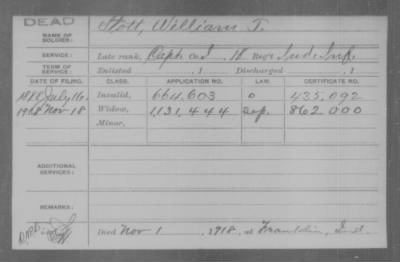 DEAD
NAME OF SOLDIER: Stott, William T.
SERVICE: Late rank, Capt. Co. I, 18 Reg't Ind. Inf.
TERM OF SERVICE: Enlisted , 1 Discharged , 1
DATE OF FILING. CLASS. APPLICATION NO. LAW. CERTIFICATE NO.
1888 July 16. Invalid, 664.603 435.092
1918 Nov 18 Widow, 1,131,444 862 000
Minor,
ADDITIONAL SERVICES:
REMARKS:
Died Nov 1 , 1918, at Franklin, Ind.